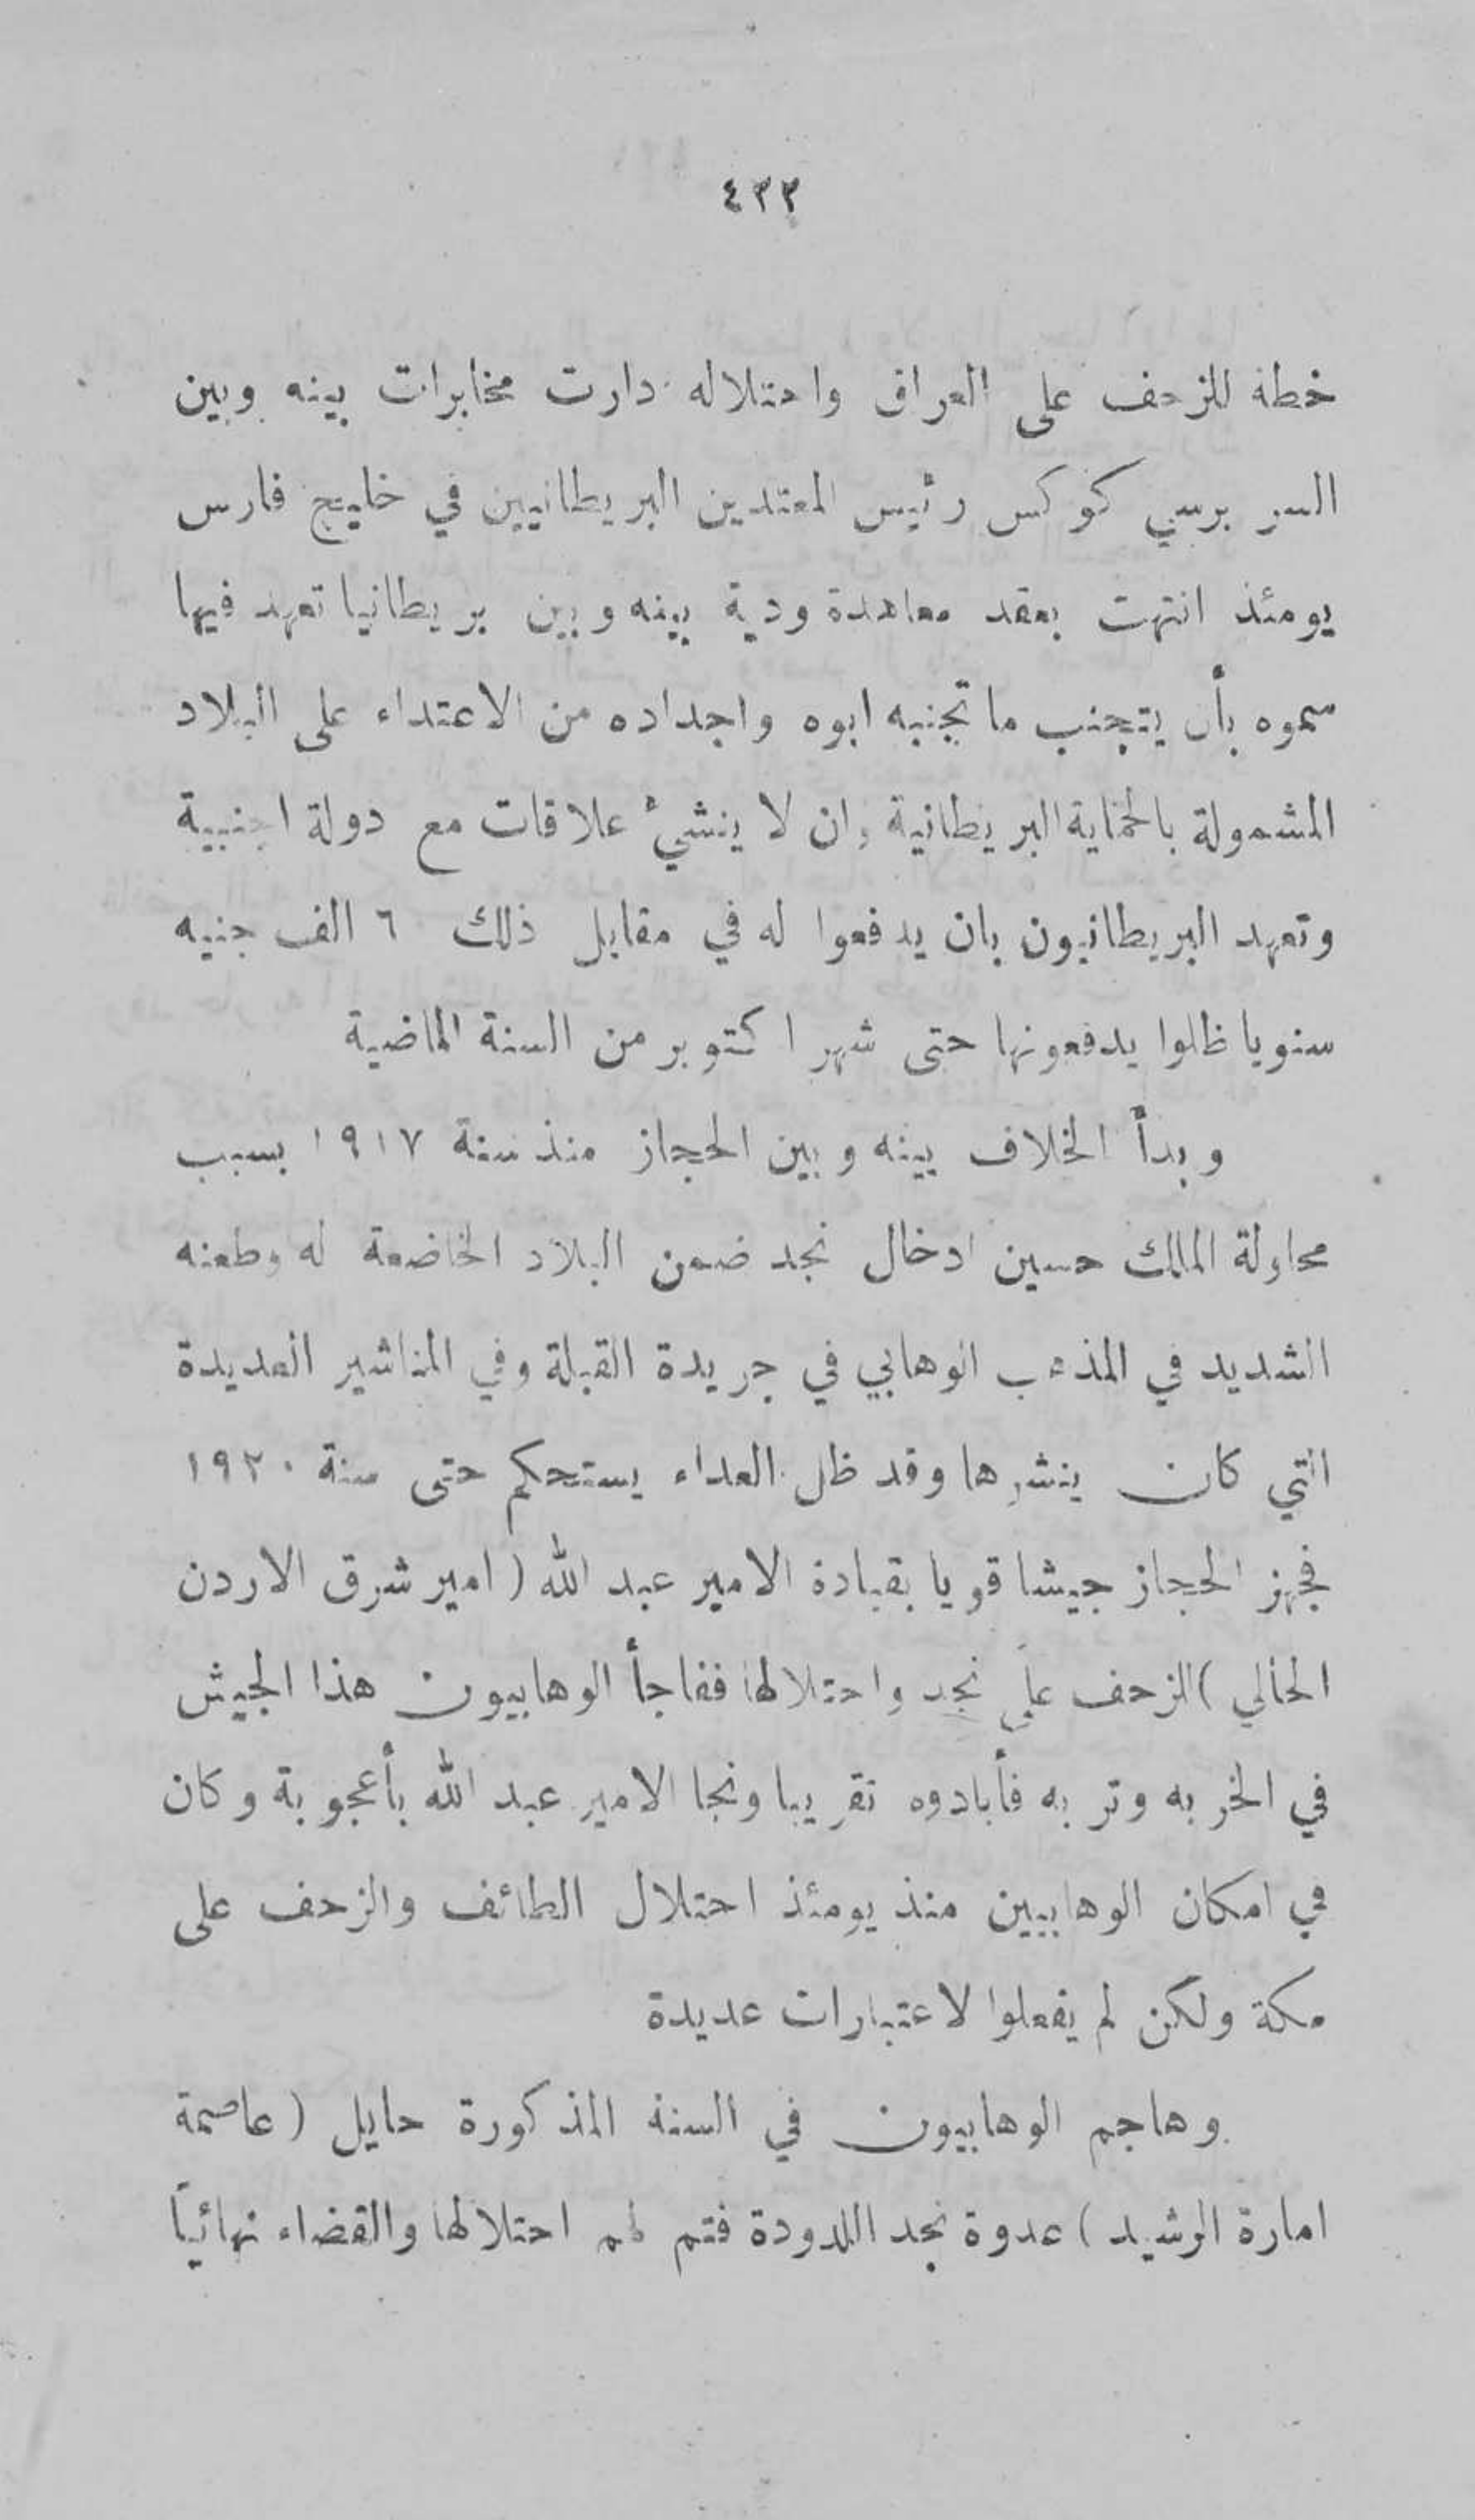 ٤٣٣
خطة للزحف على العراق واحتلاله دارت مخابرات بينه وبين
السر برسي كوكس رئيس المعتمدين البريطانيين في خليج فارس
يومئذ انتهت بعقد معاهدة ودية بينه وبين بريطانيا تعهد فيها
سموه بأن يتجنب ما تجنبه ابوه واجداده من الاعتداء على البلاد
المشمولة بالحماية البريطانية وان لا ينشيء علاقات مع دولة اجنبية
وتعهد البريطانيون بان يدفعوا له في مقابل ذلك ٦ الف جنيه
سنويا ظلوا يدفعونها حتى شهر اكتوبر من السنة الماضية
وبدأ الخلاف بينه وبين الحجاز منذ سنة ١٩١٧ بسبب
محاولة الملك حسين ادخال نجد ضمن البلاد الخاضعة له وطعنه
الشديد في المذهب الوهابي في جريدة القبلة وفي المناشير العديدة
التي كان ينشرها وقد ظل العداء يستحكم حتى سنة ١٩٢٠
فجهز الحجاز جيشا قويا بقيادة الامير عبد الله ( امير شرق الاردن
الحالي ) للزحف على نجد واحتلالها ففاجأ الوهابيون هذا الجيش
في الخربه وتربه فأبادوه تقريبا ونجا الامير عبد الله بأعجوبة وكان
في امكان الوهابيين منذ يومئذ احتلال الطائف والزحف على
مكة ولكن لم يفعلوا لاعتبارات عديدة
وهاجم الوهابيون في السنة المذكورة حايل ( عاصمة
امارة الرشيد ) عدوة نجد اللدودة فتم لهم احتلالها والقضاء نهائياً